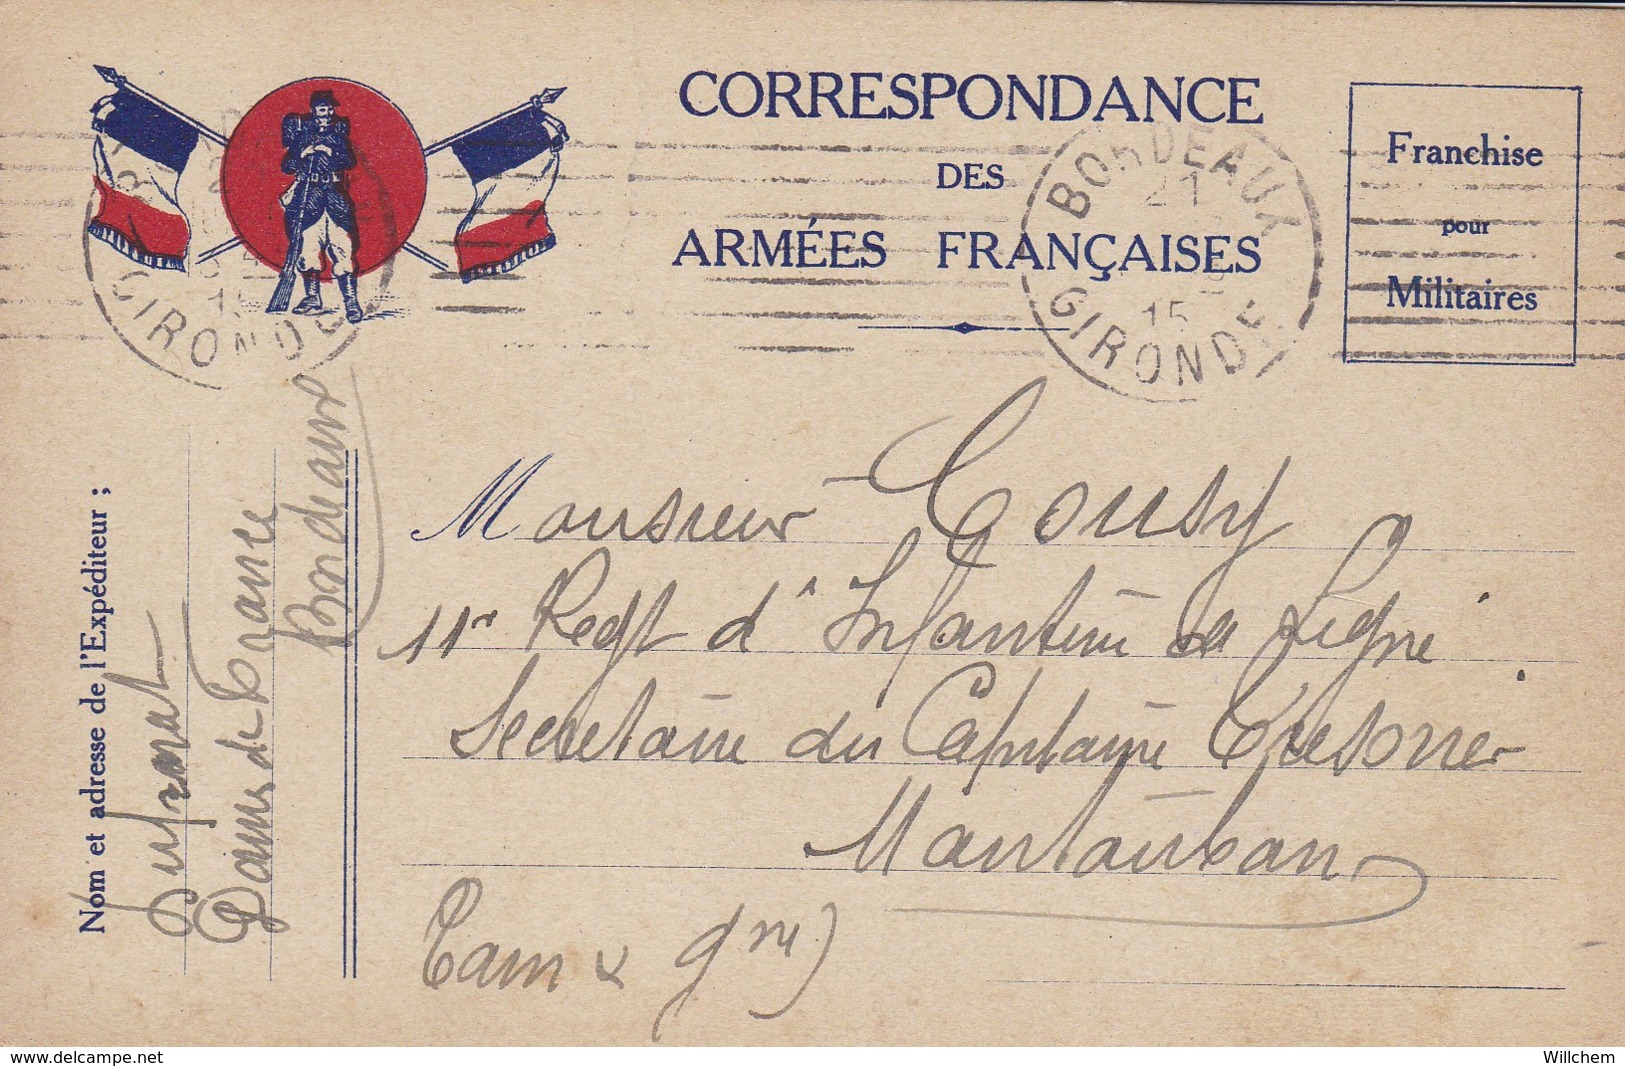 CORRESPONDANCE
DES
ARMÉES FRANÇAISES
Franchise
pour
Militaires
BORDEAUX
21
15
GIRONDE
GIRONDE
Nom et adresse de l'Expéditeur ;
Dames de France
Bordeaux
Monsieur Cousy
11e Regt d'Infanterie de Ligne
Secretaire du Capitaine Tresorier
Montauban
Tarn & Gne)
delcampe.net
Willchem